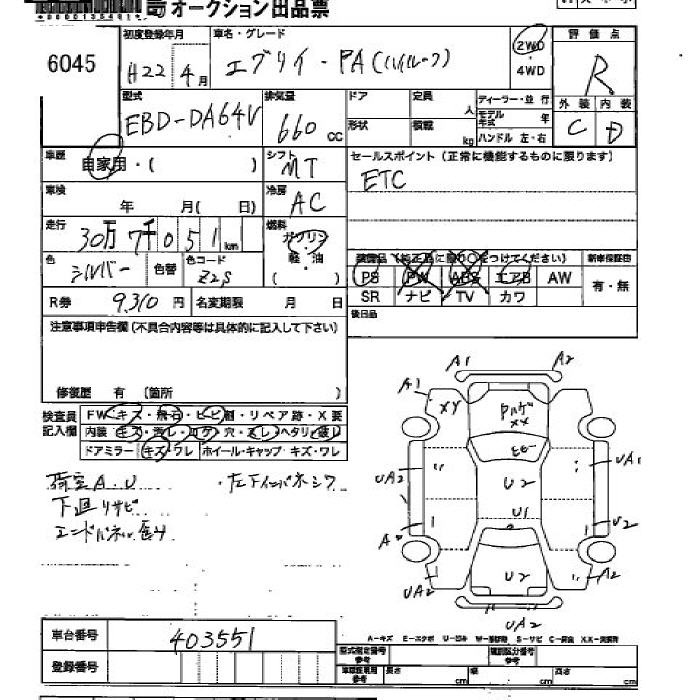 オークション出品票
6045
初度登録年月 車名・グレード 評価点
H22年4月 エブリイ・PA(ハイルーフ) 2WD・4WD R
型式 排気量 ドア 定員 人 ディーラー・並行 外装 内装
EBD-DA64V 660cc 形状 積載 kg モデル年式 年 C D
ハンドル 左・右
車歴 自家用・( ) シフト MT セールスポイント(正常に機能するものに限ります)
ETC
車検 年 月( 日) 冷房 AC
走行 30万7千051km 燃料 ガソリン
軽・油
( )
色 シルバー 色替 色コード Z2S
新車保証印
PS PW ABS エアB AW 有・無
SR ナビ TV カワ
R券 9,310円 名変期限 月 日 後日品
注意事項申告欄(不具合内容等は具体的に記入して下さい)
修復歴 有 〔箇所 〕
検査員記入欄
FW キズ・飛石・ヒビ割・リペア跡・X要
内装 キズ・汚レ・コゲ・穴・スレ・ヘタリ・破レ
ドアミラー キズ・ワレ ホイール・キャップ キズ・ワレ
荷室A.U
下廻リサビ
A1 A2
A1 XY
UA2 U2 UA1
U1
A U2
UA2 U2 A2
UA2
車台番号 403551
登録番号
型式指定番号 参考 類別区分番号 参考
長さ cm 幅 cm 高さ cm